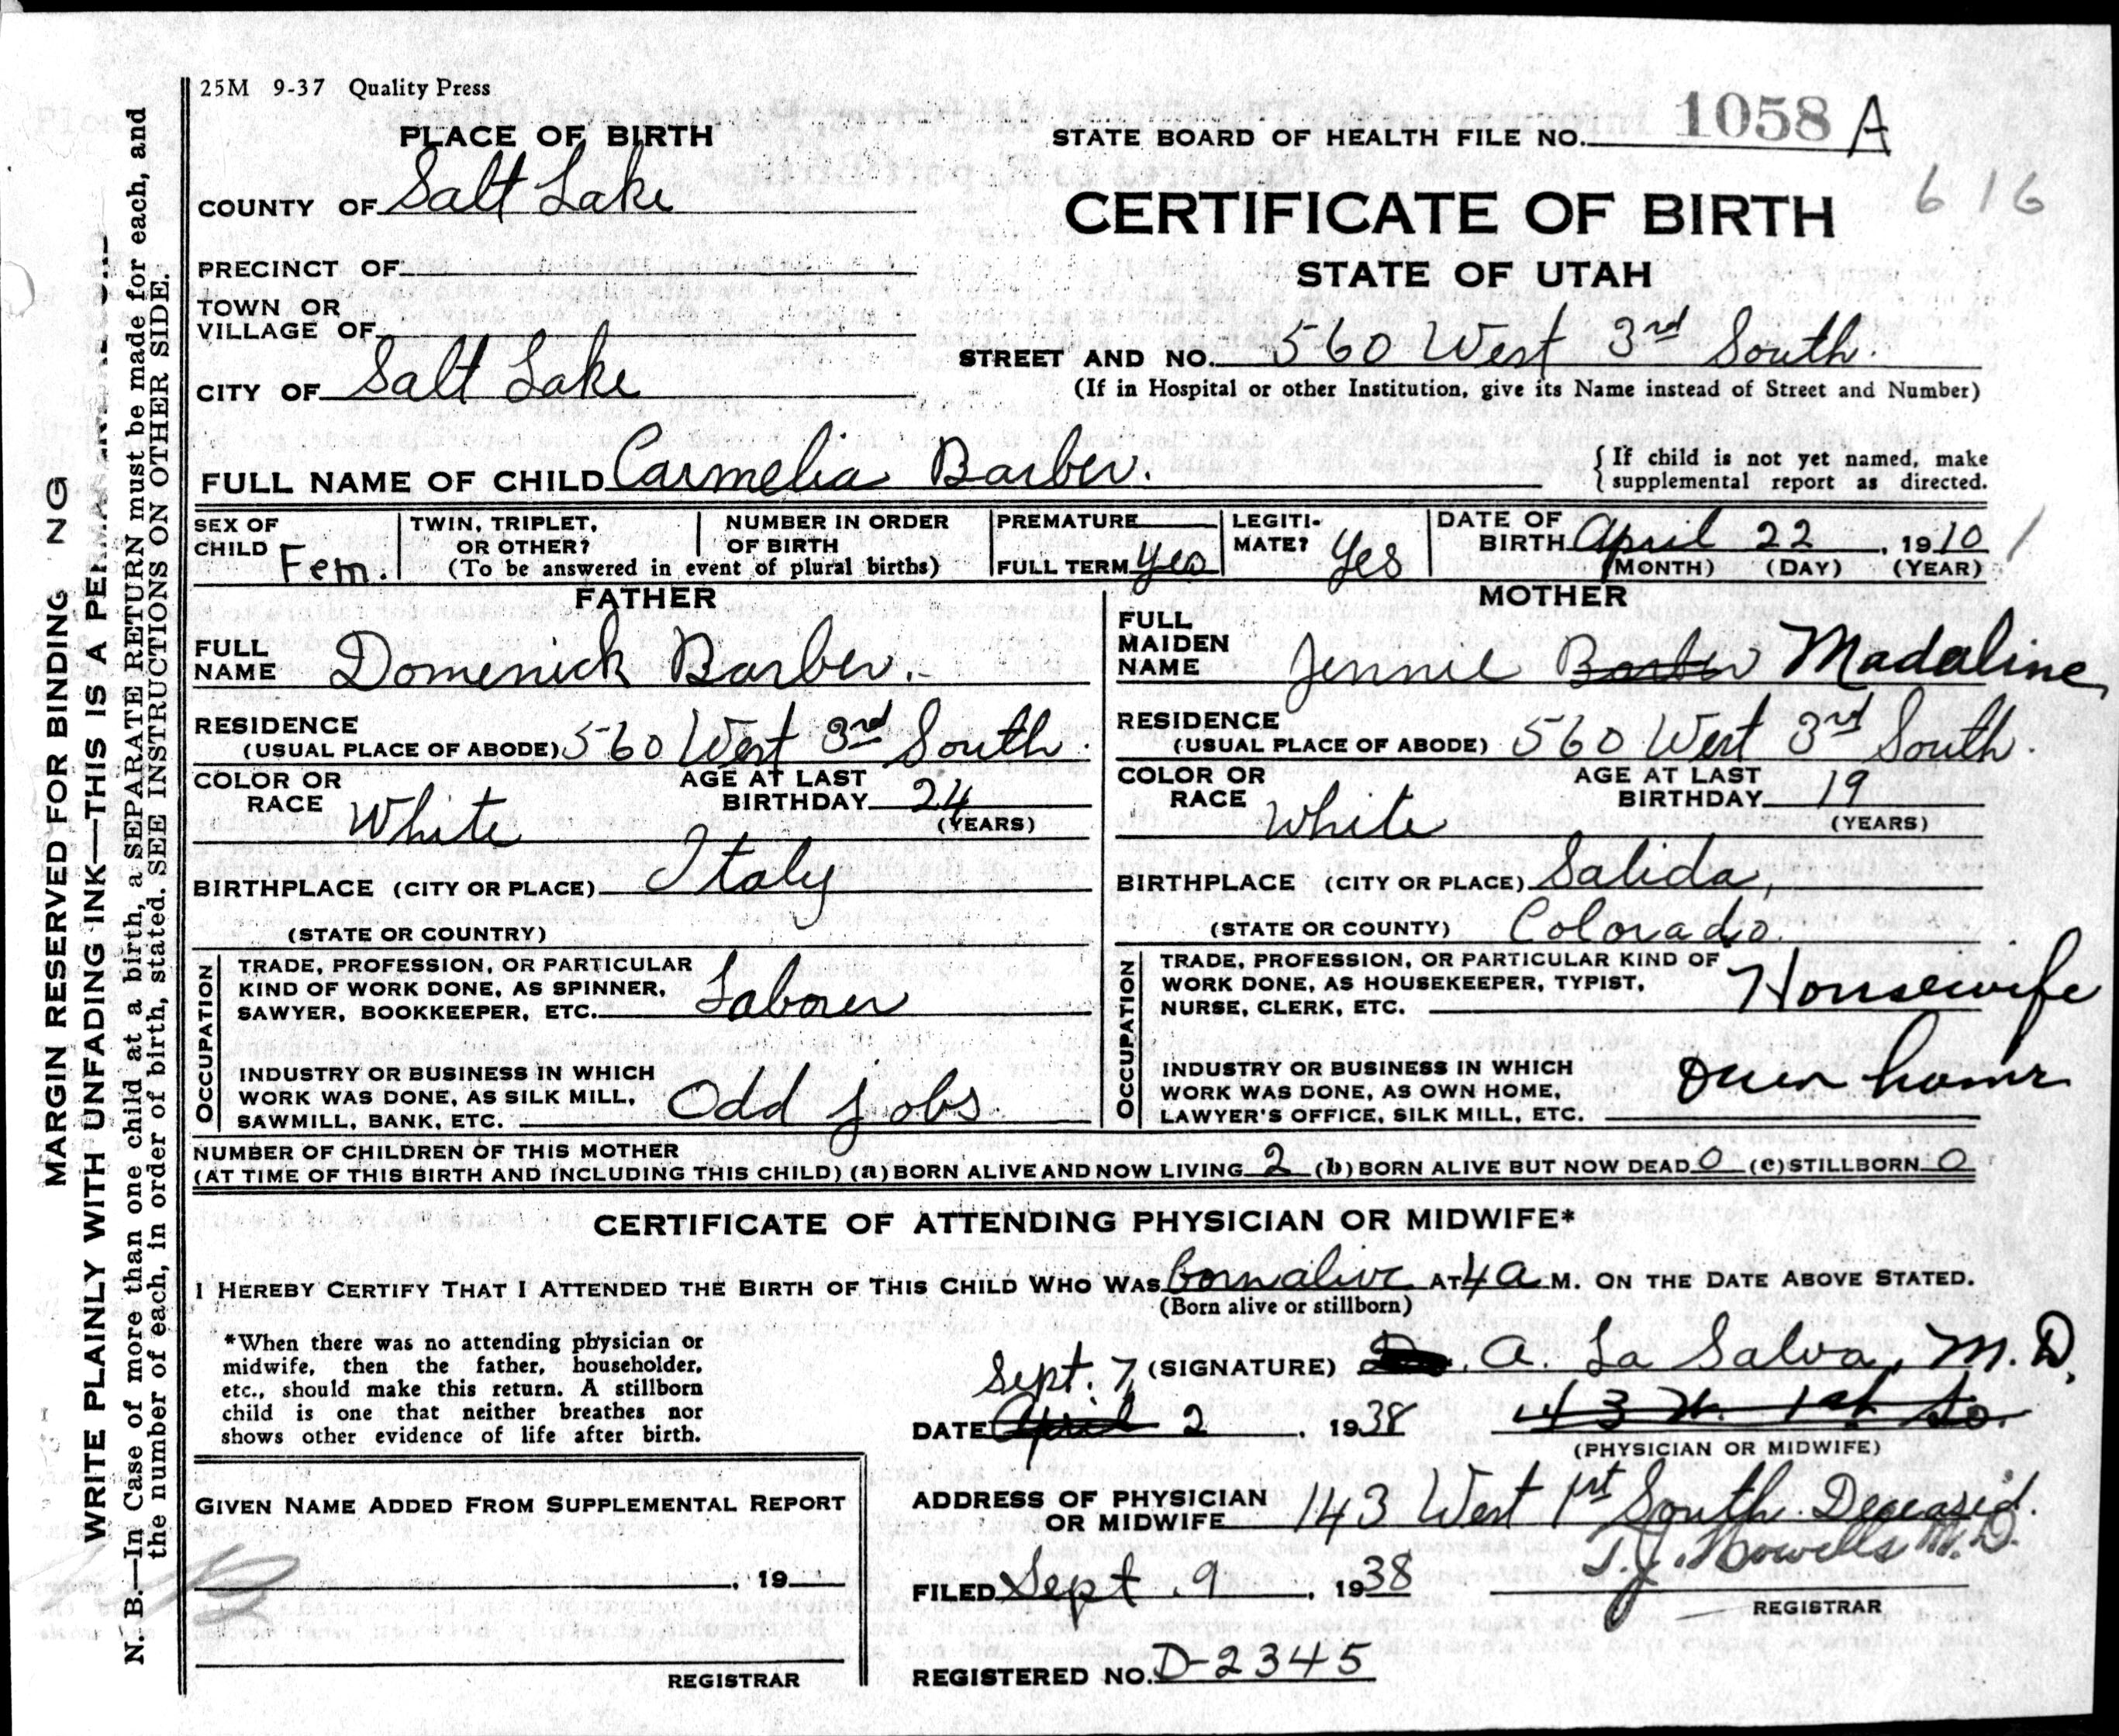 25M 9-37 Quality Press
PLACE OF BIRTH
STATE BOARD OF HEALTH FILE NO. 1058 A
616
COUNTY OF Salt Lake
CERTIFICATE OF BIRTH
PRECINCT OF
STATE OF UTAH
TOWN OR
VILLAGE OF
STREET AND NO. 560 West 3rd South.
CITY OF Salt Lake
(If in Hospital or other Institution, give its Name instead of Street and Number)
FULL NAME OF CHILD Carmelia Barber.
{ If child is not yet named, make
supplemental report as directed.
SEX OF
CHILD Fem.
TWIN, TRIPLET,
OR OTHER?
NUMBER IN ORDER
OF BIRTH
(To be answered in event of plural births)
PREMATURE
FULL TERM yes
LEGITI-
MATE? Yes
DATE OF
BIRTH April 22, 1910
(MONTH) (DAY) (YEAR)
FATHER
FULL
NAME Domenick Barber.
RESIDENCE
(USUAL PLACE OF ABODE) 560 West 3rd South.
COLOR OR
RACE White
AGE AT LAST
BIRTHDAY 24
(YEARS)
BIRTHPLACE (CITY OR PLACE) Italy
(STATE OR COUNTRY)
OCCUPATION
TRADE, PROFESSION, OR PARTICULAR
KIND OF WORK DONE, AS SPINNER,
SAWYER, BOOKKEEPER, ETC. Laborer
INDUSTRY OR BUSINESS IN WHICH
WORK WAS DONE, AS SILK MILL,
SAWMILL, BANK, ETC. Odd jobs.
MOTHER
FULL
MAIDEN
NAME Jennie Barber Madaline
RESIDENCE
(USUAL PLACE OF ABODE) 560 West 3rd South.
COLOR OR
RACE White
AGE AT LAST
BIRTHDAY 19
(YEARS)
BIRTHPLACE (CITY OR PLACE) Salida,
(STATE OR COUNTY) Colorado.
OCCUPATION
TRADE, PROFESSION, OR PARTICULAR KIND OF
WORK DONE, AS HOUSEKEEPER, TYPIST,
NURSE, CLERK, ETC. Housewife
INDUSTRY OR BUSINESS IN WHICH
WORK WAS DONE, AS OWN HOME,
LAWYER'S OFFICE, SILK MILL, ETC. Own home
NUMBER OF CHILDREN OF THIS MOTHER
(AT TIME OF THIS BIRTH AND INCLUDING THIS CHILD) (a) BORN ALIVE AND NOW LIVING 2 (b) BORN ALIVE BUT NOW DEAD 0 (c) STILLBORN 0
CERTIFICATE OF ATTENDING PHYSICIAN OR MIDWIFE*
I HEREBY CERTIFY THAT I ATTENDED THE BIRTH OF THIS CHILD WHO WAS born alive AT 4 a M. ON THE DATE ABOVE STATED.
(Born alive or stillborn)
*When there was no attending physician or
midwife, then the father, householder,
etc., should make this return. A stillborn
child is one that neither breathes nor
shows other evidence of life after birth.
Sept. 7, (SIGNATURE) A. La Salva, M.D.
DATE April 2, 1938 43 W. 1st So.
(PHYSICIAN OR MIDWIFE)
ADDRESS OF PHYSICIAN
OR MIDWIFE 143 West 1st South Deceased.
FILED Sept. 9, 1938 T.J. Howells M.D.
REGISTRAR
REGISTERED NO. D-2345
GIVEN NAME ADDED FROM SUPPLEMENTAL REPORT
, 19
REGISTRAR
MARGIN RESERVED FOR BINDING
WRITE PLAINLY WITH UNFADING INK—THIS IS A
N. B.—In Case of more than one child at a birth, a SEPARATE RETURN must be made for each, and
the number of each, in order of birth, stated. SEE INSTRUCTIONS ON OTHER SIDE.